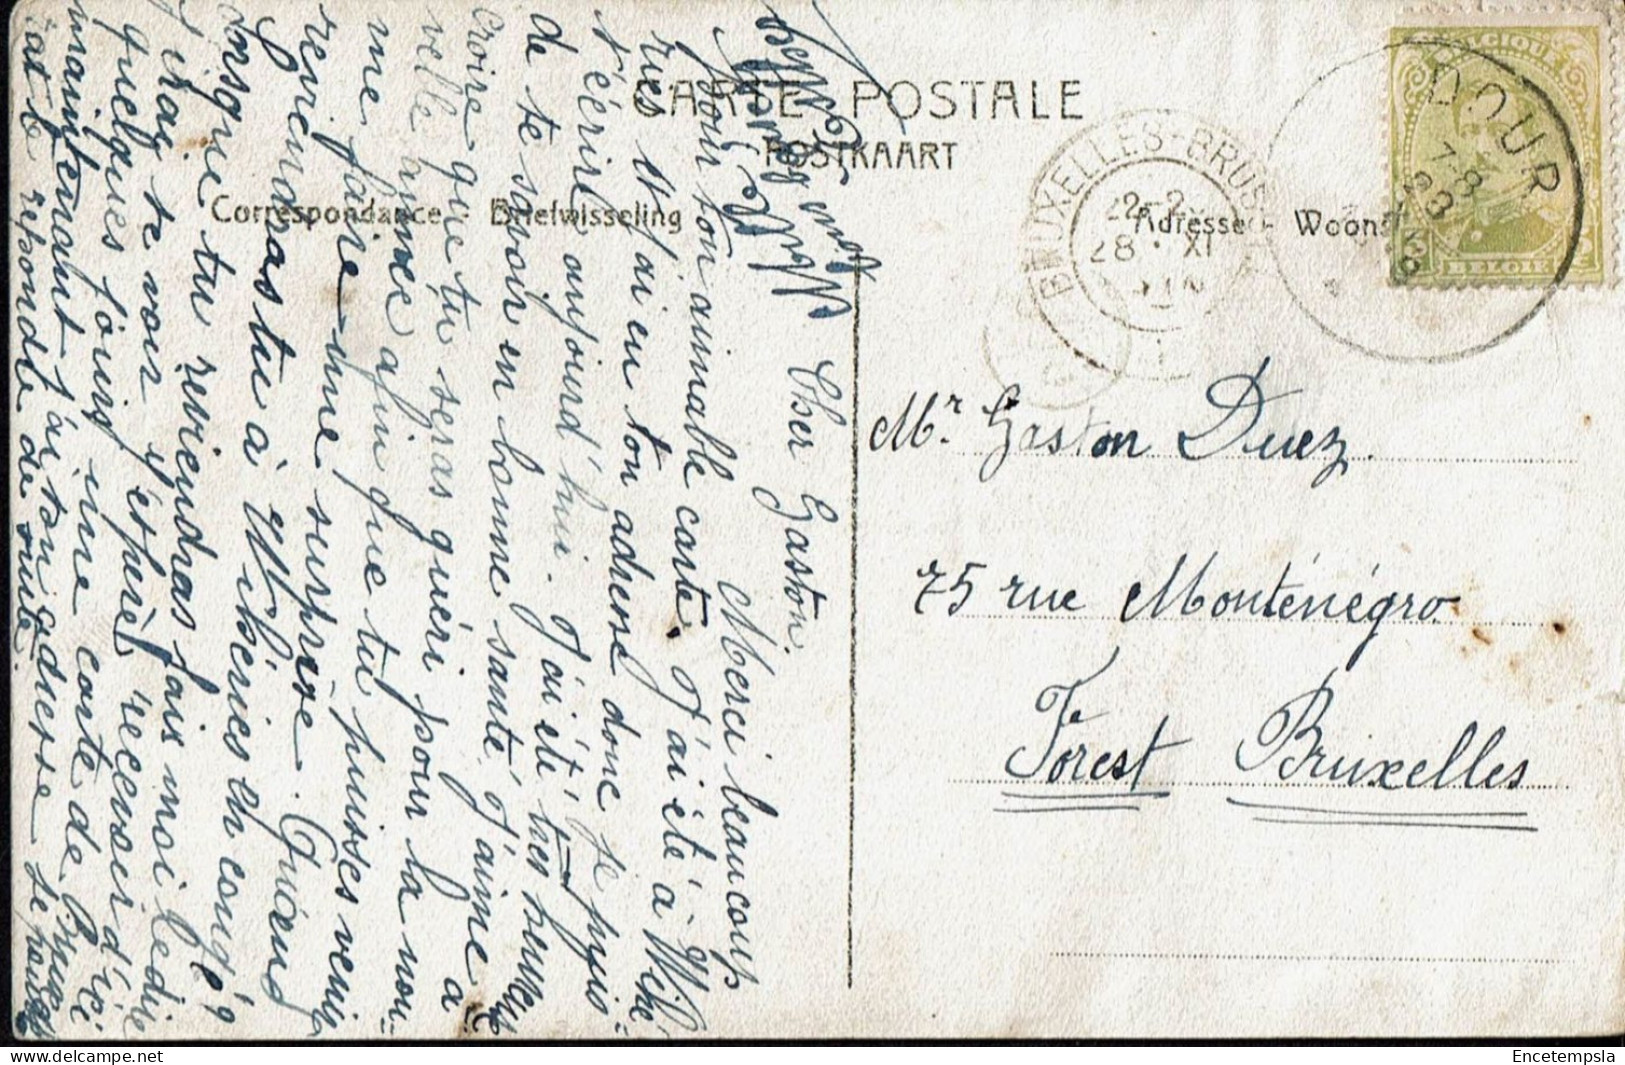 CARTE POSTALE
POSTKAART
Correspondance - Briefwisseling
Adresse - Woonst
BELGIQUE
BELGIE
DOUR
BRUXELLES-BRUS
28 XI
Cher Gaston.
Merci beaucoup
pour ton aimable carte. J'ai été à
ries et j'ai eu ton adresse donc je puis
t'écrire aujourd'hui. J'ai été très heureux
de te savoir en bonne santé. J'aime à
croire que tu seras guéri pour la nou-
velle année afin que tu puisses venir
me faire une surprise. Quand
reviendras tu à Wihéries en congé?
Lorsque tu reviendras fais moi le dire
j'irai te voir j'espère recevoir d'ici
quelques jours une carte de
maintenant j'ai ton adresse
de te répondre de suite.
Mr. Gaston Duez.
75 rue Monténégro
Forest Bruxelles
Encetempsla